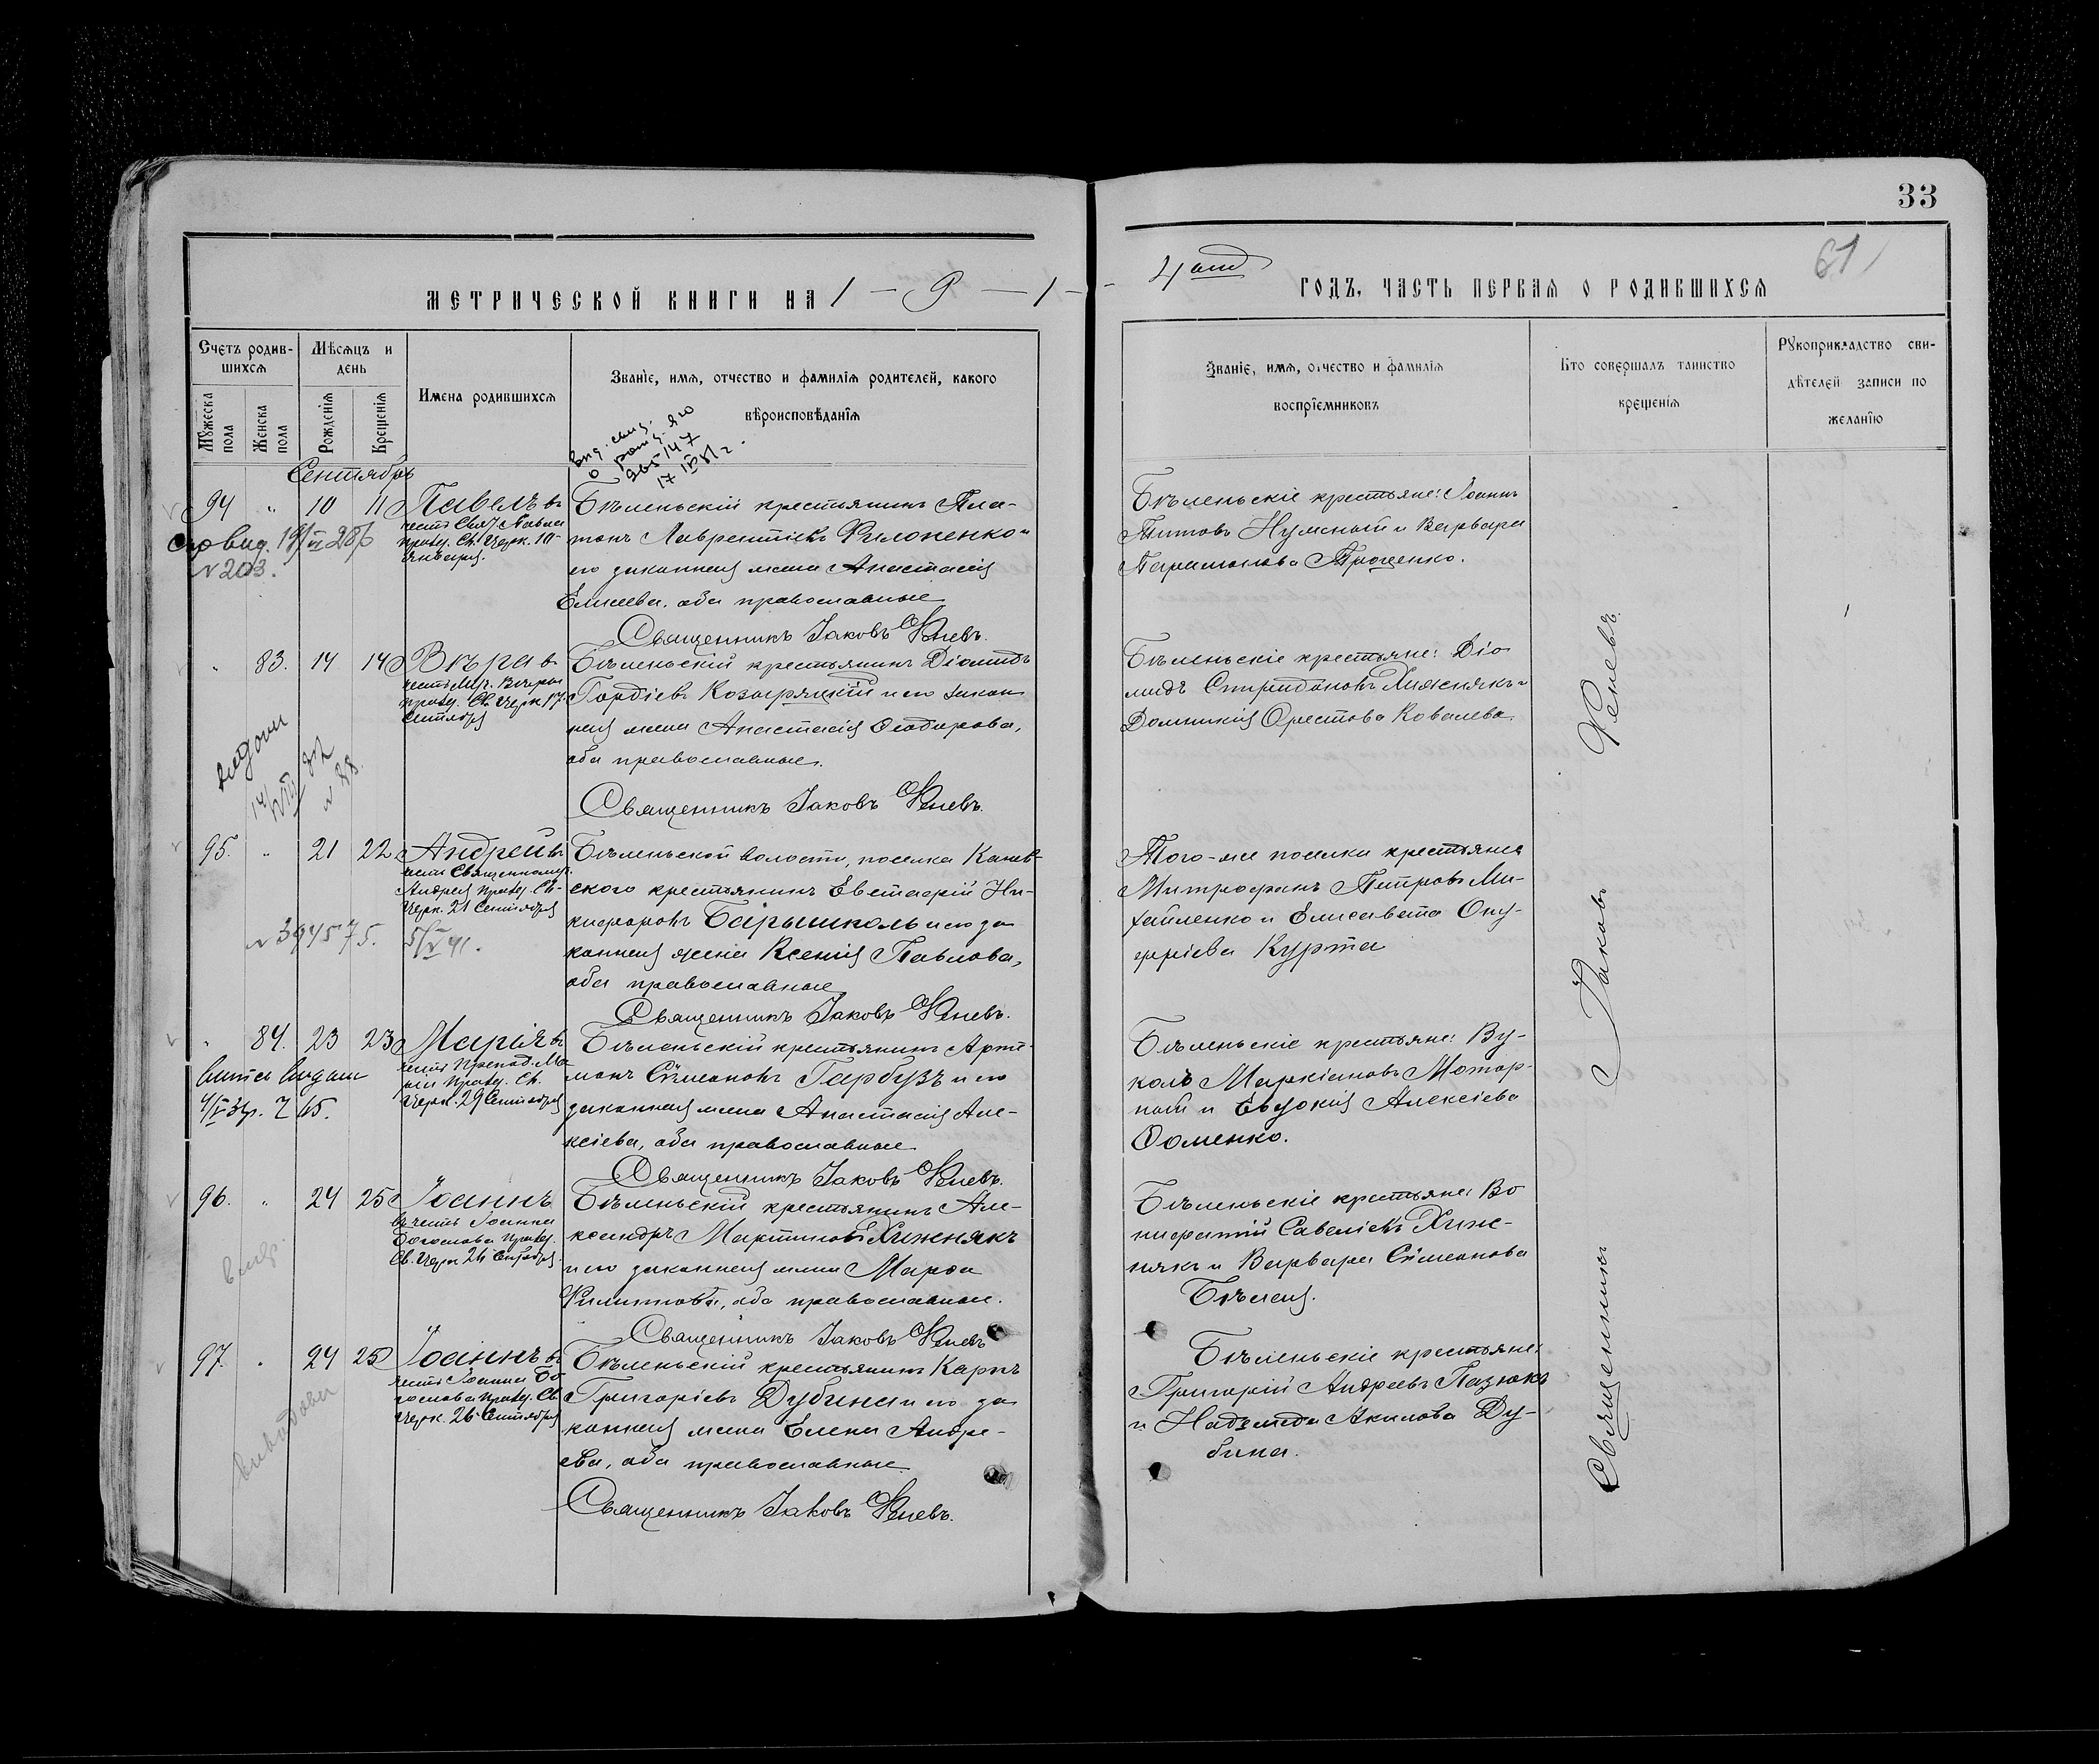 33
61
МЕТРИЧЕСКОЙ КНИГИ НА 1 — 9 — 1 —
4 ГОДЪ, ЧАСТЬ ПЕРВАЯ О РОДИВШИХСЯ
Счетъ родив-
шихся
Мѣсяцъ и
день
Мужеска
пола
Женска
пола
Рожденія
Крещенія
Имена родившихся
Званіе, имя, отчество и фамилія родителей, какого
вѣроисповѣданія
Званіе, имя, отчество и фамилія
воспріемниковъ
Кто совершалъ таинство
крещенія
Рукоприкладство сви-
дѣтелей записи по
желанію
Сентябрь
94 " 10 11 Павелъ въ
честь Свят. Павла
празд. Св. Церк. 10
Января.
№ 203.
Бѣленьскій крестьянинъ Пла-
тонъ Лаврентіевъ Филоненко и
его законная жена Анастасія
Елисеева, оба православные
Священникъ Іаковъ Феневъ.
Бѣленьскіе крестьяне: Іоаннъ
Титовъ Нумный и Варвара
Парамонова Троценко.
" 83. 14 14 Вѣра въ
честь Муч. Вѣры
празд. Св. Церк 17
Сентября
Бѣленьскій крестьянинъ Діомидъ
Гордіевъ Козыряцкій и его закон
ная жена Анастасія Ѳеодорова,
оба православные.
Священникъ Іаковъ Феневъ.
Бѣленьскіе крестьяне: Діо
мидъ Спиридоновъ Хижнякъ и
Домникія Орестова Ковалева.
95. " 21 22 Андрей въ
честь Священному.
Андрея празд. Св.
Церк. 21 Сентября
№ 394575. 5/V 41.
Бѣленьской волости, поселка Канев-
ского крестьянинъ Евстафій Ни-
кифоровъ Барышполь и его за
конная жена Ксенія Павлова,
оба православные
Священникъ Іаковъ Феневъ.
Того-же поселка крестьяне
Митрофанъ Петровъ Ми-
хайленко и Елисавета Ону-
фріева Курта
" 84. 23 23 Марія въ
честь Препод. Ма
ріи празд. Св.
Церк. 29 Сентября
Бѣленьскій крестьянинъ Арте-
монъ Сѵмеоновъ Гарбузъ и его
законная жена Анастасія Але-
ксіева, оба православные
Священникъ Іаковъ Феневъ.
Бѣленьскіе крестьяне: Ву-
колъ Маркіановъ Мотор-
ный и Евдокія Алексіева
Ѳоменко.
96. " 24 25 Іоаннъ
въ честь Іоанна
Богослова празд.
Св. Церк 26 Сентября
Бѣленьскій крестьянинъ Але-
ксандръ Мартиновъ Хижнякъ
и его законная жена Марѳа
Филиппова, оба православные.
Священникъ Іаковъ Феневъ
Бѣленьскіе крестьяне: Во
нифатій Савеліевъ Хиж-
някъ и Варвара Сѵмеонова
Бѣлая.
97. " 24 25 Іоаннъ въ
честь Іоанна Бо
гослова празд. Св.
Церк. 26 Сентября
Бѣленьскій крестьянинъ Карпъ
Григоріевъ Дубина и его за
конная жена Елена Андре-
ева, оба православные.
Священникъ Іаковъ Феневъ.
Бѣленьскіе крестьяне:
Григорій Андреевъ Пазюкъ
и Надежда Акилова Ду-
бина.
Священникъ Іаковъ Феневъ.